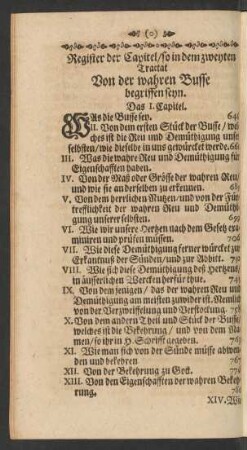 (o)
Register der Capitel / so in dem zweyten
Tractat
Von der wahren Busse
begriffen seyn.
Das I. Capitel.
WAs die Busse sey. 646
II. Von dem ersten Stück der Busse / wel-
ches ist die Reu und Demüthigung unser
selbsten / wie dieselbe in uns gewürcket werde.
III. Was die wahre Reu und Demüthigung für
Eigenschafften haben.
IV. Von der Maß oder Grösse der wahren Reu /
und wie sie an derselben zu erkennen.
V. Von dem herrlichen Nutzen / und von der Für-
trefflichkeit der wahren Reu und Demüthi-
gung unserer selbsten. 695
VI. Wie wir unsere Hertzen nach dem Gesetz exa-
miniren und prüfen müssen. 706
VII. Wie diese Demüthigung ferner würcket zu
Erkantnuß der Sünden / und zur Abbitt.
VIII. Wie sich diese Demüthigung deß Hertzens /
in äusserlichen Wercken herfür thue.
IX. Von demjenigen / das der wahren Reu und
Demüthigung am meisten zuwider ist. Nemlich
von der Verzweifelung und Verstockung.
X. Von dem andern Theil und Stück der Busse /
welches ist die Bekehrung / und von dem Na-
men / so ihr in H. Schrifft gegeben. 763
XI. Wie man sich von der Sünde müsse abwen-
den und bekehren. 767
XII. Von der Bekehrung zu Gott.
XIII. Von den Eigenschafften der wahren Bekeh-
rung.
XIV. Wie